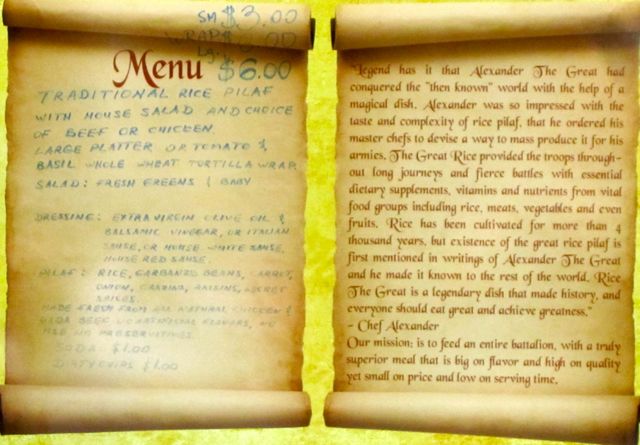 SM $3.00
WRAP $5.00
Lg. $6.00
Menu
TRADITIONAL RICE PILAF
WITH HOUSE SALAD AND CHOICE
OF BEEF OR CHICKEN.
LARGE PLATTER OR TOMATO &
BASIL WHOLE WHEAT TORTILLA WRAP
SALAD: FRESH GREENS & BABY
DRESSING: EXTRA VIRGIN OLIVE OIL &
BALSAMIC VINEGAR, OR ITALIAN
SAUSE, OR HOUSE WHITE SAUSE,
HOUSE RED SAUSE.
PILAF: RICE, GARBANZO BEANS, CARROT,
ONION, RAISINS, SECRET
SPICES.
MADE FRESH FROM ALL NATURAL CHICKEN &
BEEF NO ARTIFICIAL FLAVORS, NO
PRESERVATIVES.
SODA $1.00
DIRTY CHIPS $1.00
"Legend has it that Alexander The Great had
conquered the "then known" world with the help of a
magical dish. Alexander was so impressed with the
taste and complexity of rice pilaf, that he ordered his
master chefs to devise a way to mass produce it for his
armies. The Great Rice provided the troops through-
out long journeys and fierce battles with essential
dietary supplements, vitamins and nutrients from vital
food groups including rice, meats, vegetables and even
fruits. Rice has been cultivated for more than 4
thousand years, but existence of the great rice pilaf is
first mentioned in writings of Alexander The Great
and he made it known to the rest of the world. Rice
The Great is a legendary dish that made history, and
everyone should eat great and achieve greatness."
- Chef Alexander
Our mission: is to feed an entire battalion, with a truly
superior meal that is big on flavor and high on quality
yet small on price and low on serving time.